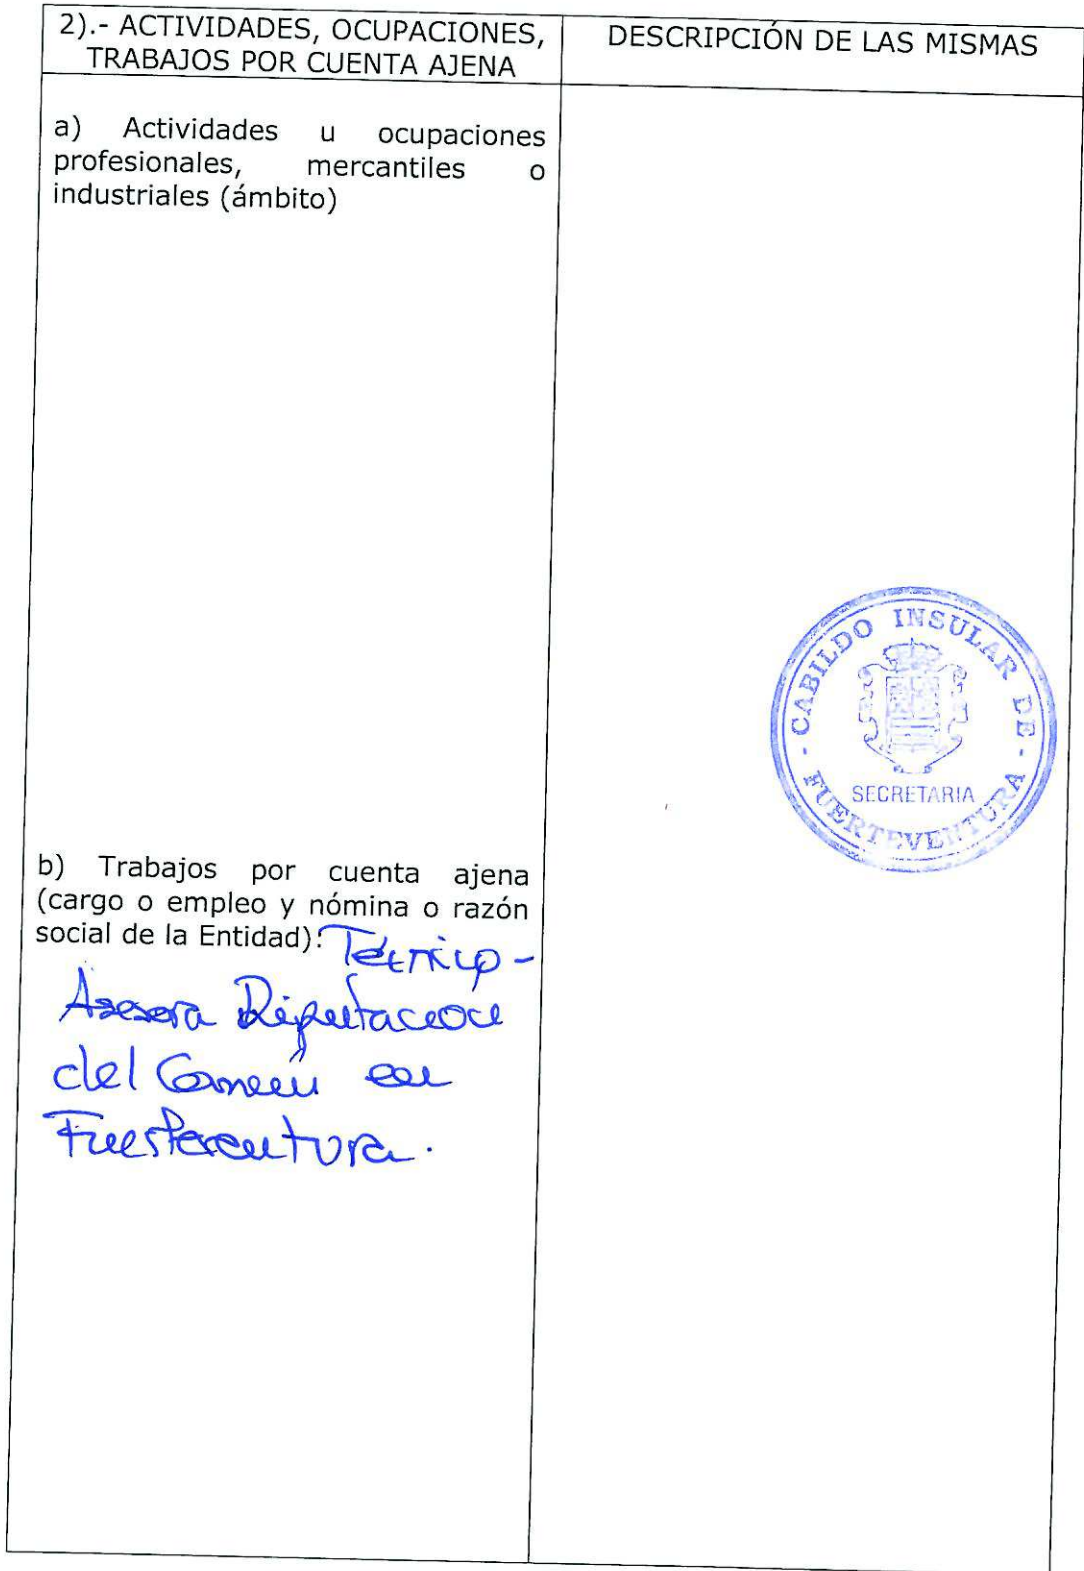 2).- ACTIVIDADES, OCUPACIONES,
TRABAJOS POR CUENTA AJENA
DESCRIPCIÓN DE LAS MISMAS
a) Actividades u ocupaciones
profesionales, mercantiles o
industriales (ámbito)
- CABILDO INSULAR DE -
FUERTEVENTURA
SECRETARIA
b) Trabajos por cuenta ajena
(cargo o empleo y nómina o razón
social de la Entidad): Técnico -
Asesora Diputación
del Común en
Fuerteventura.